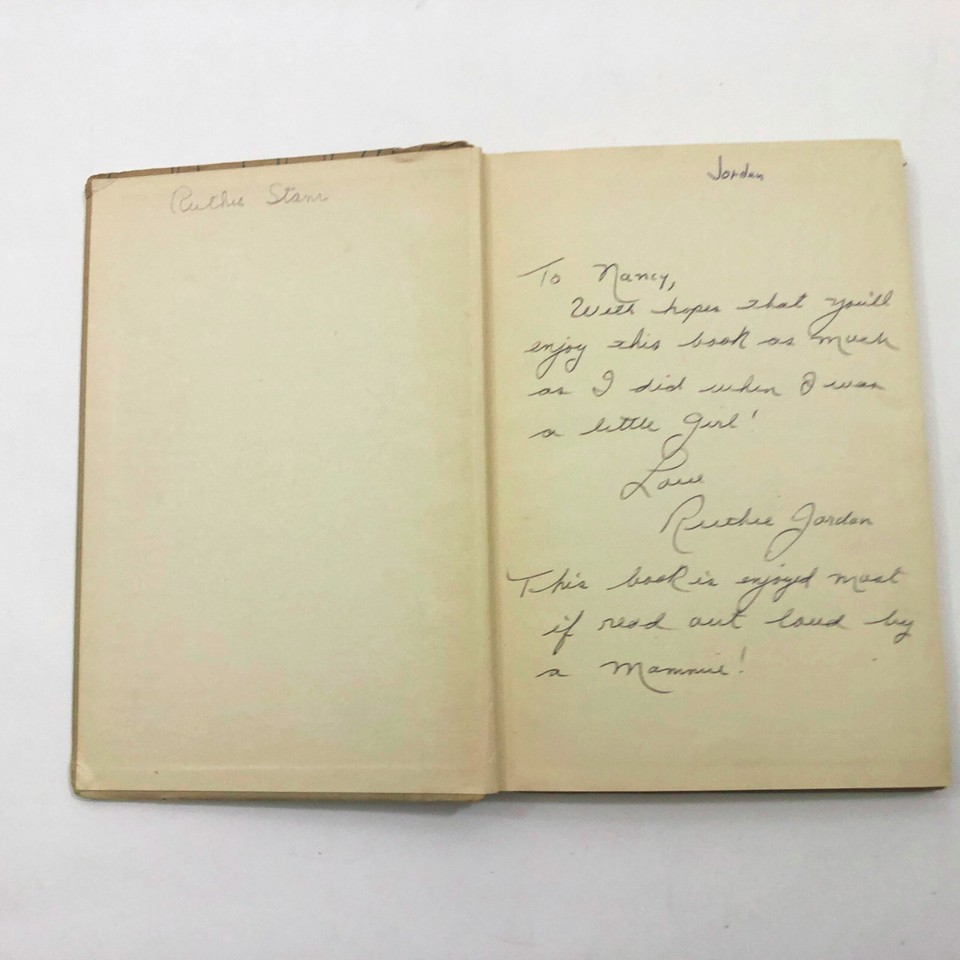 Ruthie Starr
Jordan
To Nancy,
With hopes that you'll
enjoy this book as much
as I did when I was
a little girl!
Love
Ruthie Jordan
This book is enjoyed most
if read out loud by
a Mommie!